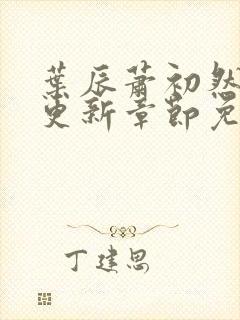 葉辰蕭初然
更新章節免
丁建思